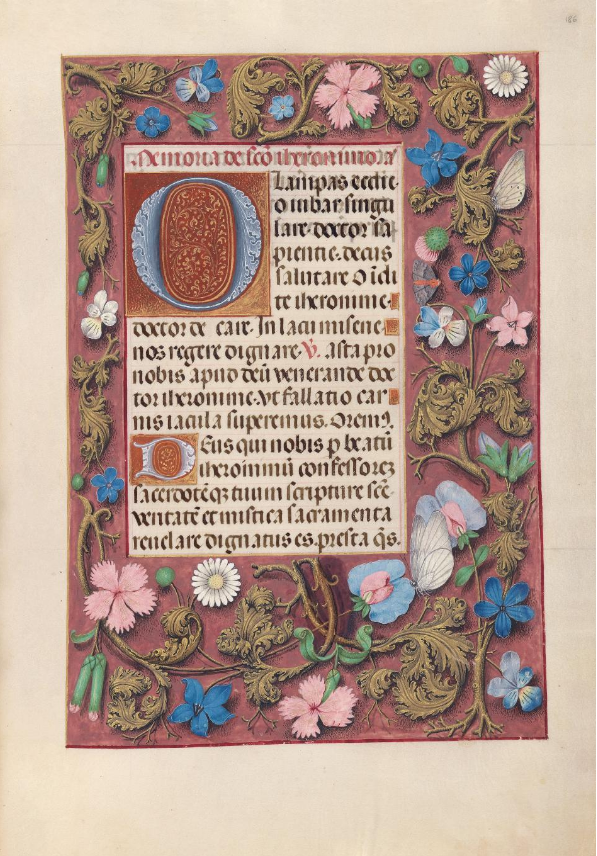 Memoria de sc̄o iheronimo aͣ
O Lampas ecclie
o iubar singu
lare doctor sa
pientie. decus
salutare O idi
te iheronime.
doctor de care. In lacu misene
nos regere dignare V. asta pro
nobis apud deū venerande doc
tor iheronime. vt fallatio car
nis iacula superemus. Orem9.
Deus qui nobis p beatū
iheronimū confessorez
sacerdotēqz tuum scripture scē
veritatē et mistica sacramenta
reuelare dignatus es. presta q̄s.